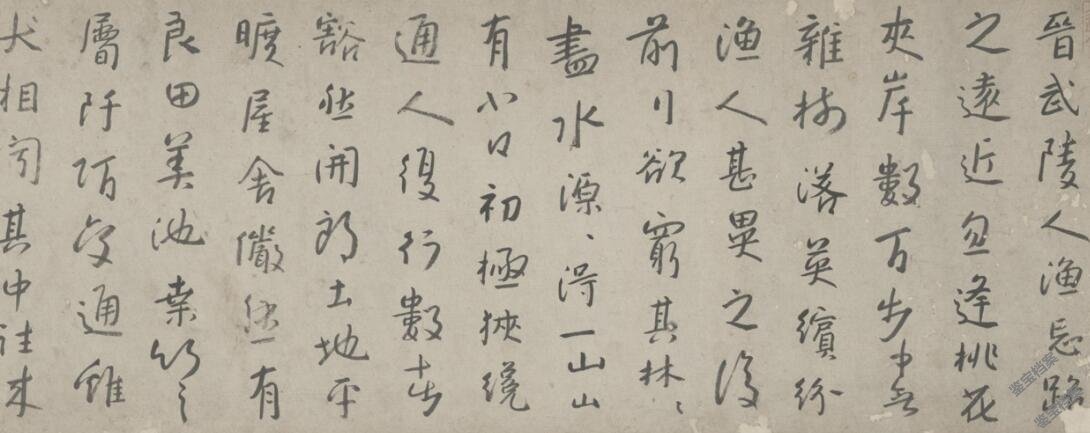 晉武陵人漁忘路
之遠近忽逢桃花
夾岸數百步中無
雜樹落英繽紛
漁人甚異之復
前行欲窮其林〻
盡水源〻得一山山
有小口初極狹纔
通人復行數十步
豁然開朗土地平
曠屋舍儼然有
良田美池桑竹之
層阡陌交通雞
犬相聞其中往來
鉴宝档案
鉴宝档案